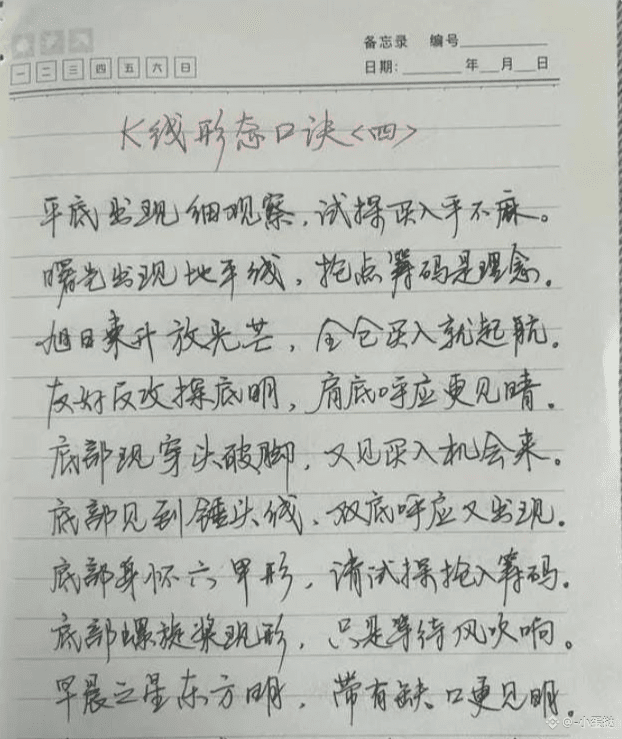 备忘录 编号
一 二 三 四 五 六 日
日期: 年 月 日
K线形态口诀<四>
平底出现细观察,试探买入手不麻。
曙光出现地平线,抢点筹码是理念。
旭日东升放光芒,全仓买入就起航。
友好反攻探底明,肩底呼应更见晴。
底部现穿头破脚,又见买入机会来。
底部见到锤头线,双底呼应又出现。
底部身怀六甲形,请试探抢入筹码。
底部螺旋桨现形,只是等待风吹响。
早晨之星东方明,带有缺口更见明。